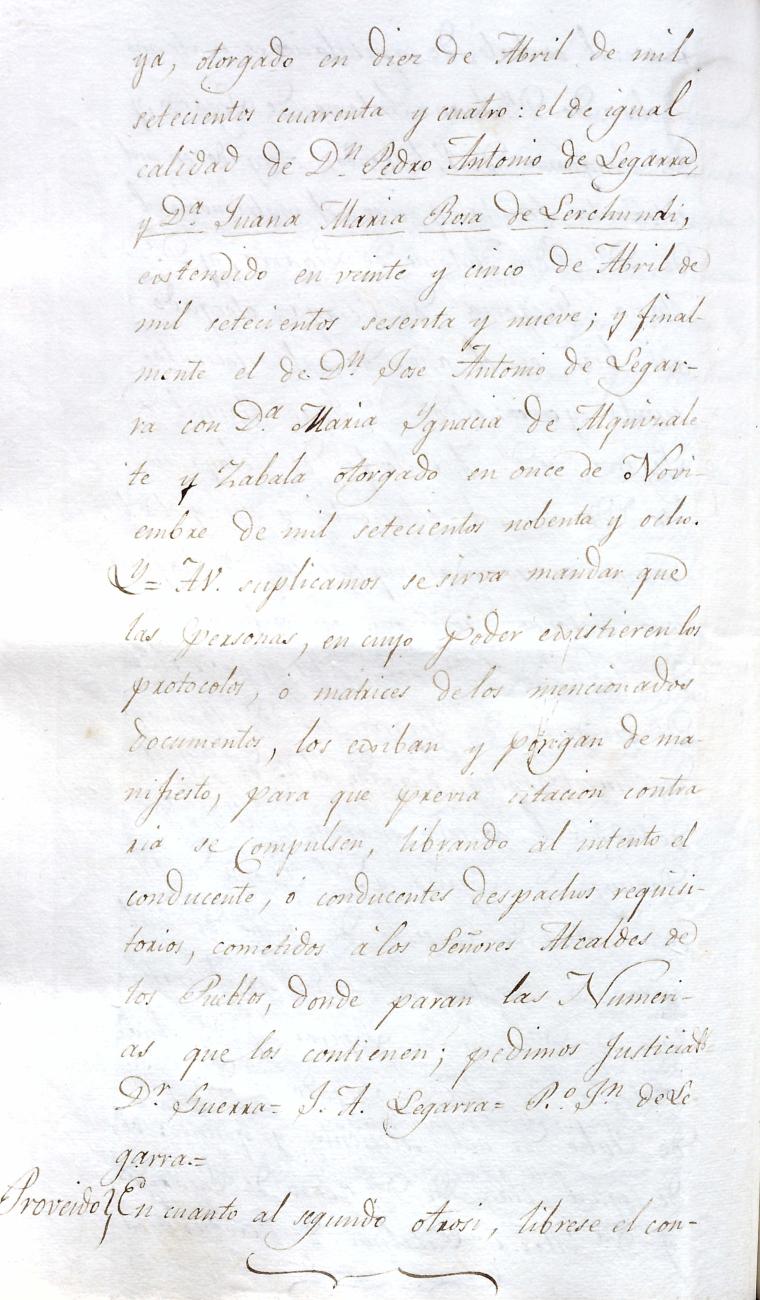 ya, otorgado en diez de Abril de mil
setecientos cuarenta y cuatro: el de igual
calidad de Dn Pedro Antonio de Legarra,
y Da Juana Maria Rosa de Lerchundi,
extendido en veinte y cinco de Abril de
mil setecientos sesenta y nueve; y final-
mente el de Dn Jose Antonio de Legar-
ra con Da Maria Ygnacia de Alquizale-
te y Zabala otorgado en once de Novi-
embre de mil setecientos nobenta y ocho.
Y= AV. suplicamos se sirva mandar que
las personas, en cuyo poder existieren los
protocolos, o matrices delos mencionados
documentos, los exiban y pongan de ma-
nifiesto, para que previa citacion contra
ria se compulsen, librando al intento el
conducente, o conducentes despachos requisi-
torios, cometidos à los Señores Alcaldes de
los Pueblos, donde paran las Numeri-
as que los contienen; pedimos Justicia
Dr Guerra= J. A. Legarra= P.o Jn de Le
garra.=
Proveido} En cuanto al segundo otrosi, librese el con-